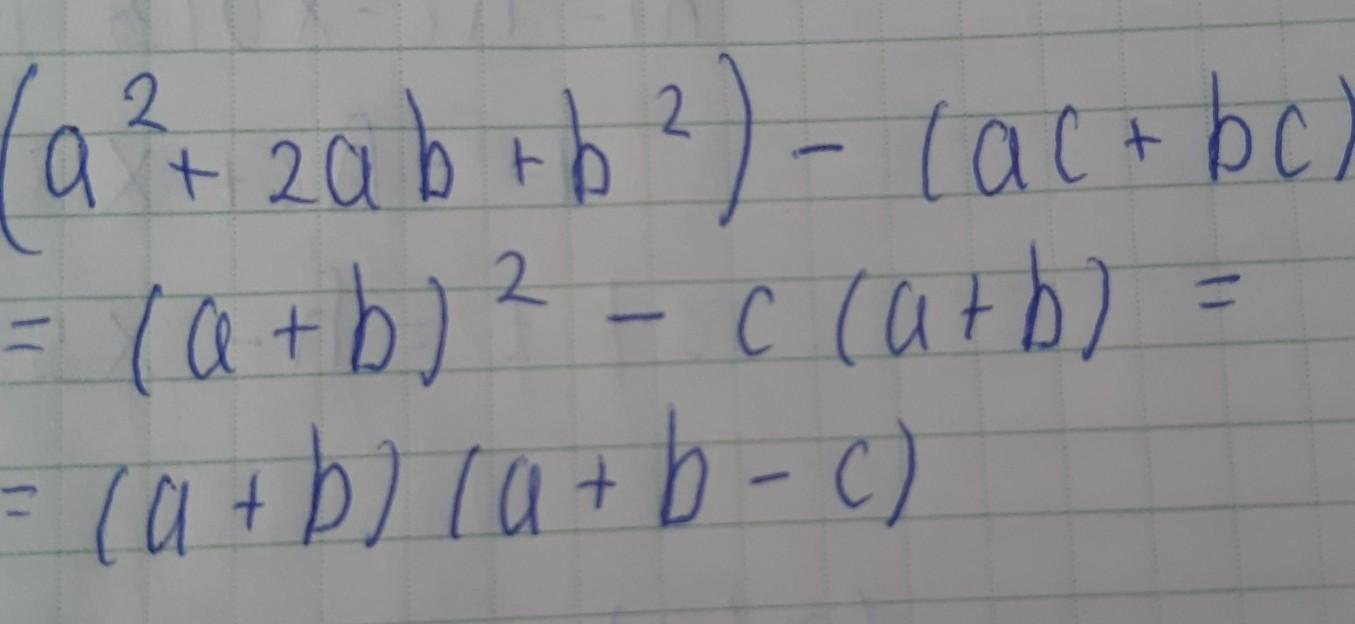 (a² + 2ab + b²) - (ac + bc)
= (a + b)² - c (a + b) =
= (a + b) (a + b - c)